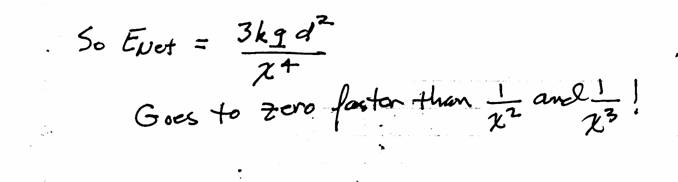 So E_Net = 3kqd²/x⁴
Goes to zero faster than 1/x² and 1/x³!